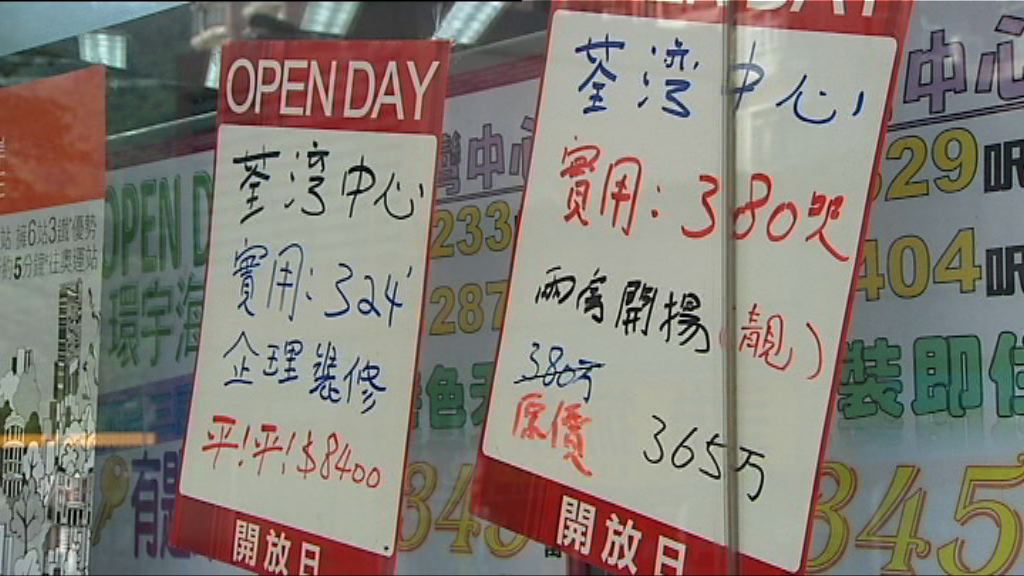 OPEN DAY
荃灣中心
實用：324'
企理裝修
平！平！$8400
開放日
OPEN DAY
荃灣中心
實用：380呎
兩房開揚（靚）
380万
原價 365万
開放日
站 擁6站3鐵優勢
約5分鐘往奧運站
OPEN D
環宇海
灣中心
233
287
色
有
345
中心
529呎
404呎
裝即住
345